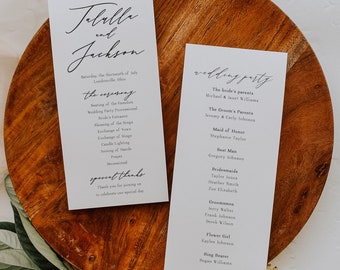 Talulla
and
Jackson
Saturday, the Fourteenth of July
Loudonville, Ohio
the ceremony
Seating of the Families
Wedding Party Processional
Entrance of the Bride
Blessing of the Rings
Exchange of Vows
Exchange of Rings
Candle Lighting
Joining of Hands
Prayer
Recessional
special thanks
Thank you for joining us
to celebrate our special day
wedding party
The bride's parents
Michael & Janet Williams
The Groom's Parents
Jeremy & Carly Johnson
Maid of Honor
Stephanie Taylor
Best Man
Gregory Johnson
Bridesmaids
Taylor Jones
Heather Smith
Zoe Elliott
Groomsmen
Jerry Walker
Frank Johnson
Derek Wilson
Flower Girl
Kaylee Johnson
Ring Bearer
Logan Williams